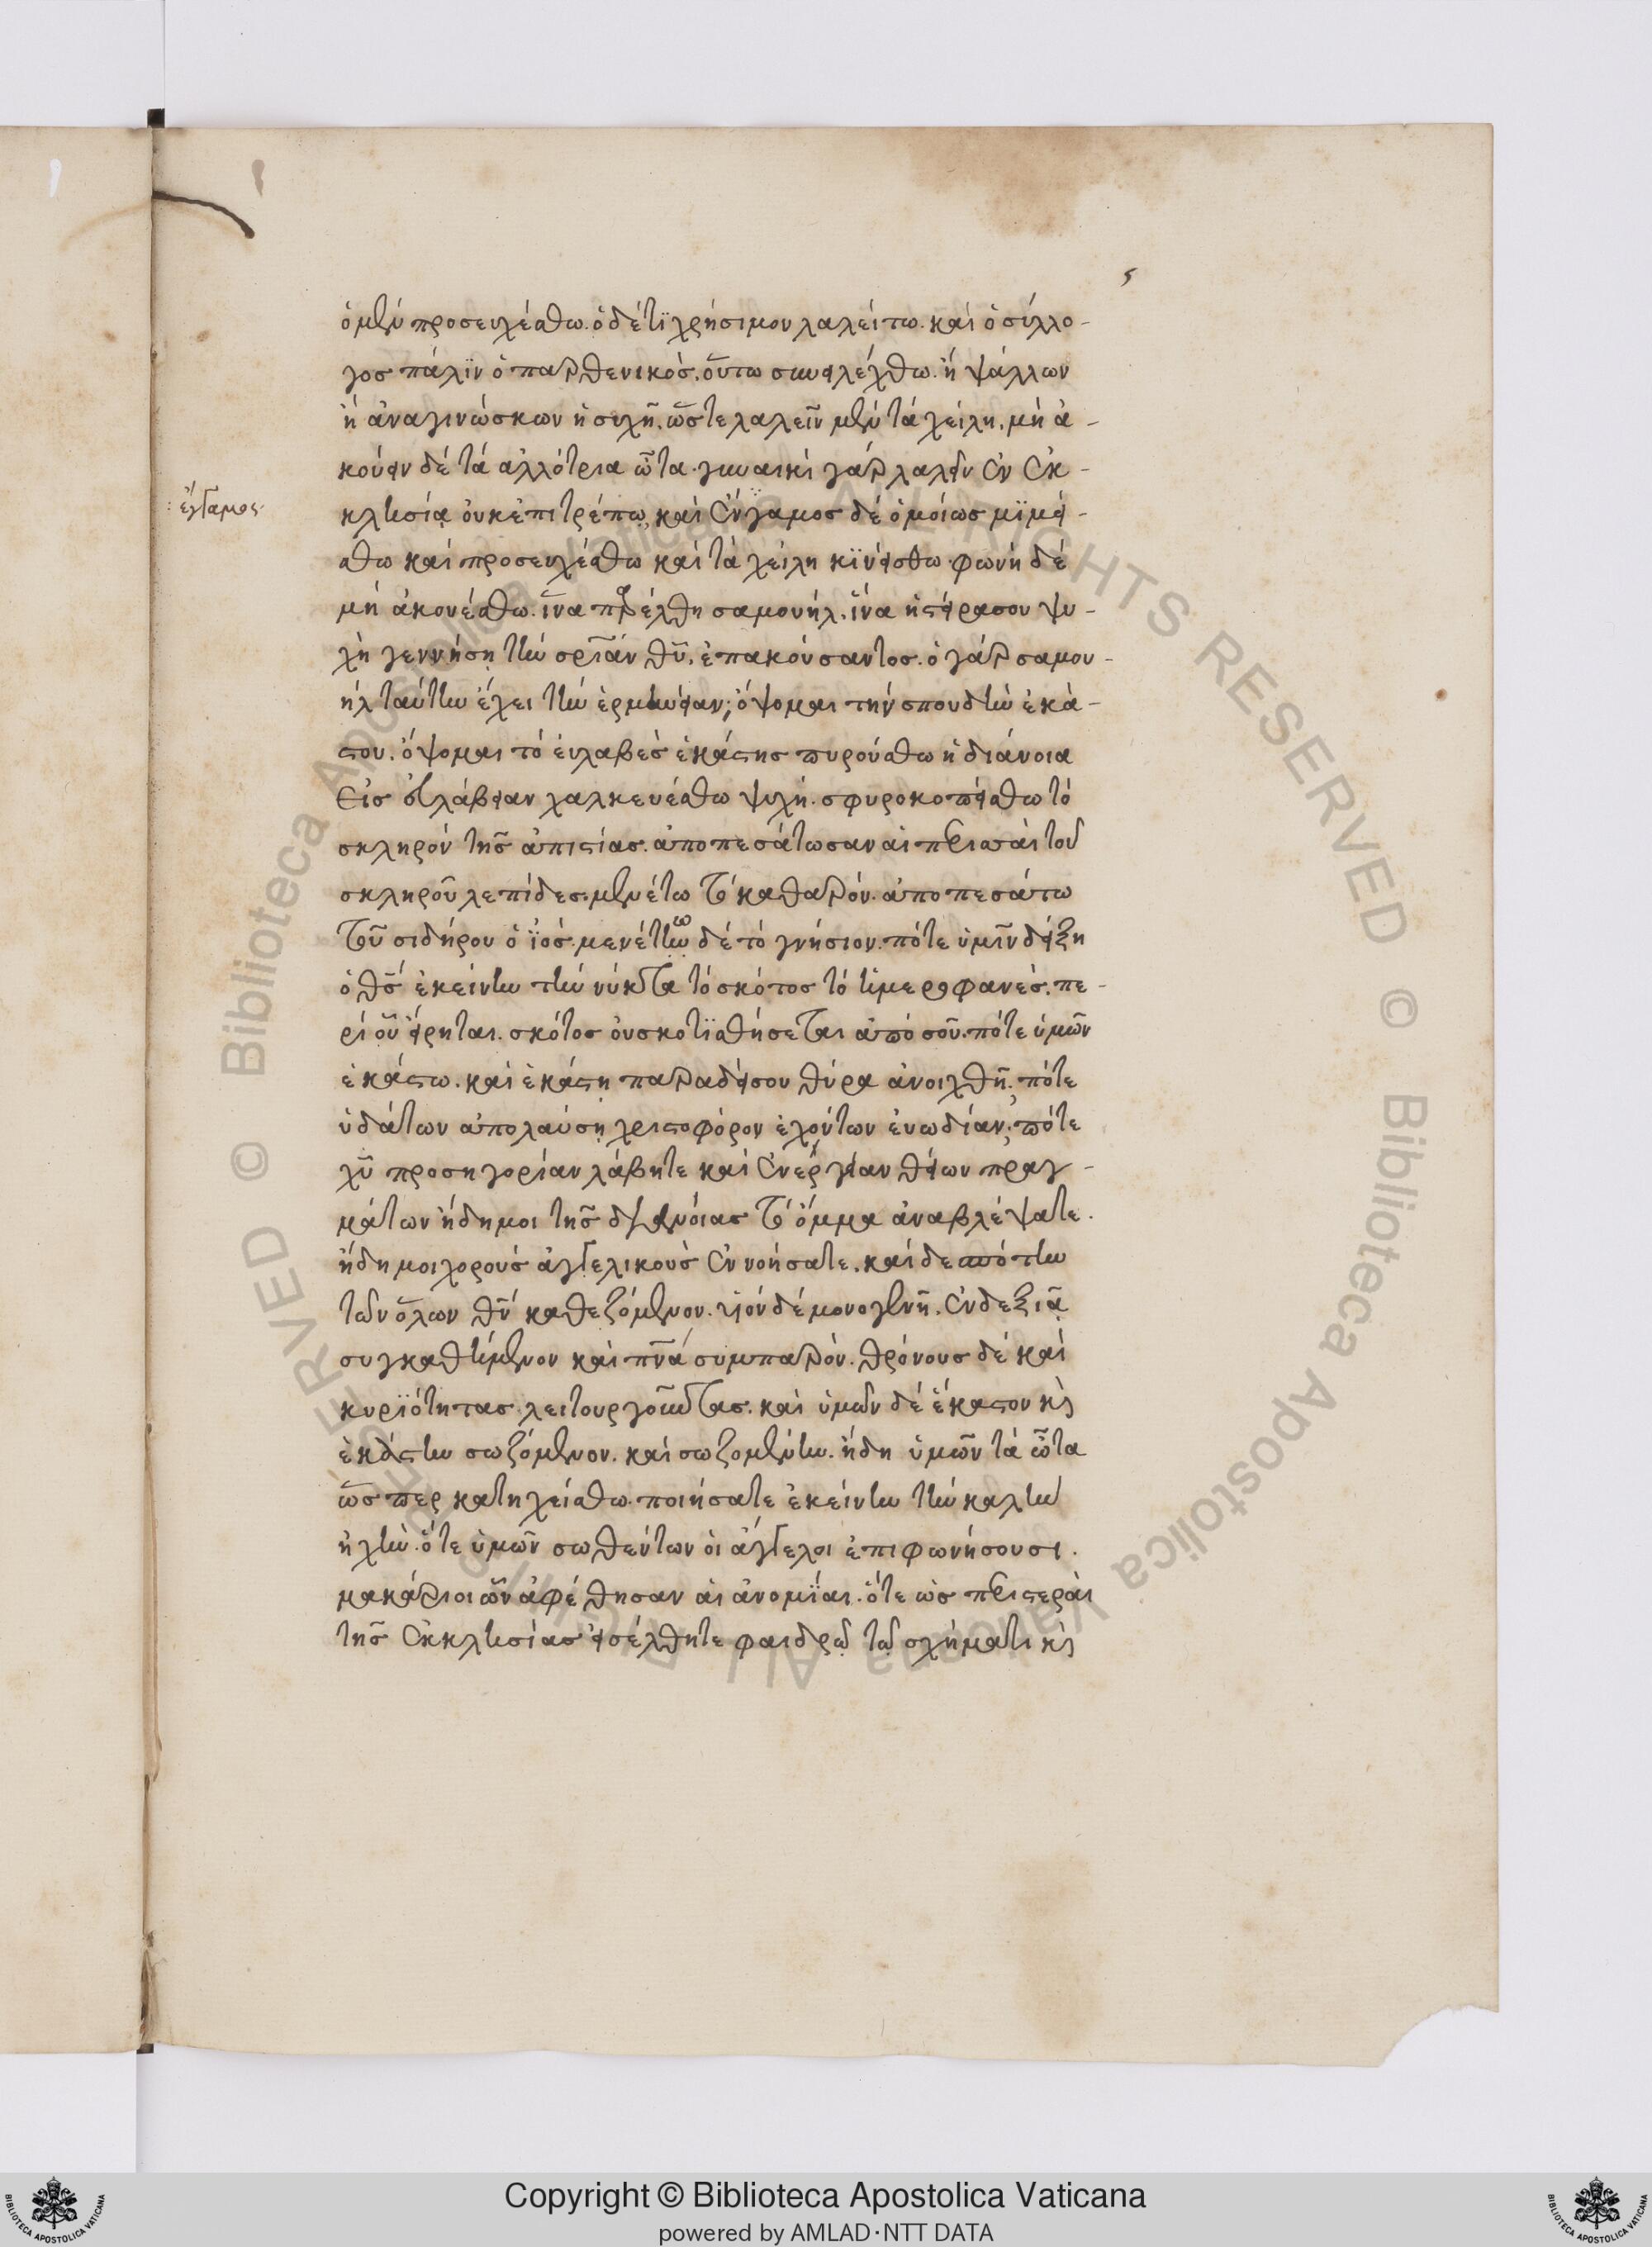 ς
ὁ μὲν προσευχέσθω. ὁ δέ τϊ χρήσιμον λαλείτω. καί ὁ σύλλο-
γοσ πάλϊν ὁ παρθενικόσ. οὕτω συνειλέχθω. ἢ ψάλλων
ἢ ἀναγινώσκων ἡσυχῆ. ὥστε λαλεῖν μὲν τά χείλη. μή ἀ-
κούειν δέ τά ἀλλότρια ὦτα. γυναικί γάρ λαλεῖν ἐν ἐκ-
: ἔγγαμος.
κλησίᾳ οὐκ ἐπιτρέπω, καί ἔνγαμοσ δέ ὁμοίωσ μϊμεί-
σθω καί προσευχέσθω καί τά χείλη κϊνείσθω. φωνή δέ
μή ἀκουέσθω. ἵνα παρέλθη σαμουήλ. ἵνα ἡ στείρα σου ψυ-
χὴ γεννήσῃ τὴν σρίαν θῦ. ἐπακούσαντοσ. ὁ γάρ σαμου-
ήλ ταύτην ἔχει τὴν ἑρμηνείαν; ὄψομαι τήν σπουδὴν ἑκά-
στου. ὄψομαι τό ἐυλαβέσ ἑκάστησ πυρούσθω ἡ διάνοια
εἰσ εὐλάβειαν χαλκευέσθω ψυχή. σφυροκοπείσθω τό
σκληρόν τῆσ ἀπιστίασ. ἀποπεσάτωσαν αἱ περισσαί τοῦ
σκληροῦ λεπίδεσ. μενέτω τό καθαρόν. ἀποπεσάτω
τοῦ σιδήρου ὁ ϊόσ. μενέτω δέ τό γνήσιον. πότε ὑμῖν δείξη
ὁ θσ ἐκείνην τήν νύκτα τό σκότοσ τό ἡμεροφανέσ. πε-
ρί οὗ εἴρηται. σκότοσ οὐ σκοτϊσθήσεται ἀπό σοῦ. πότε ὑμῶν
ἑκάστω. καί ἑκάστη παραδείσου θύρα ἀνοιχθῆ. πότε
ὑδάτων ἀπολαύσῃ χριστοφόρον ἐχόντων ἐυωδίαν; πότε
χῦ προσηγορίαν λάβητε καί ἐνεργείαν θείων πραγ-
μάτων ἤδη μοι τῆσ διανοίασ τό ὄμμα ἀναβλέψατε.
ἤδη μοι χορούσ ἀγγελικούσ ἐννοήσατε. καί δεσπότην
τῶν ὅλων θν καθεζόμενον. υἱόν δέ μονογενῆ. ἐν δεξιᾷ
συγκαθήμενον καί πνα συμπαρόν. θρόνουσ δέ καί
κυρϊότητασ λειτουργοῦντασ. καί ὑμῶν δέ ἕκαστον κὶ
ἑκάστην σωζόμενον. καί σωζομένην. ἤδη ὑμῶν τά ὦτα
ὥσπερ κατηχείσθω. ποιήσατε ἐκείνην τήν καλὴν
ἠχὴν. ὅτε ὑμῶν σωθέντων οἱ ἄγγελοι ἐπιφωνήσουσι.
μακάριοι ὧν ἀφέθησαν αἱ ἀνομΐαι. ὅτε ὡσ περιστεραί
τῆσ ἐκκλησίασ εἰσέλθητε φαιδρῶ τῶ σχήματι κὶ
Copyright © Biblioteca Apostolica Vaticana
powered by AMLAD·NTT DATA